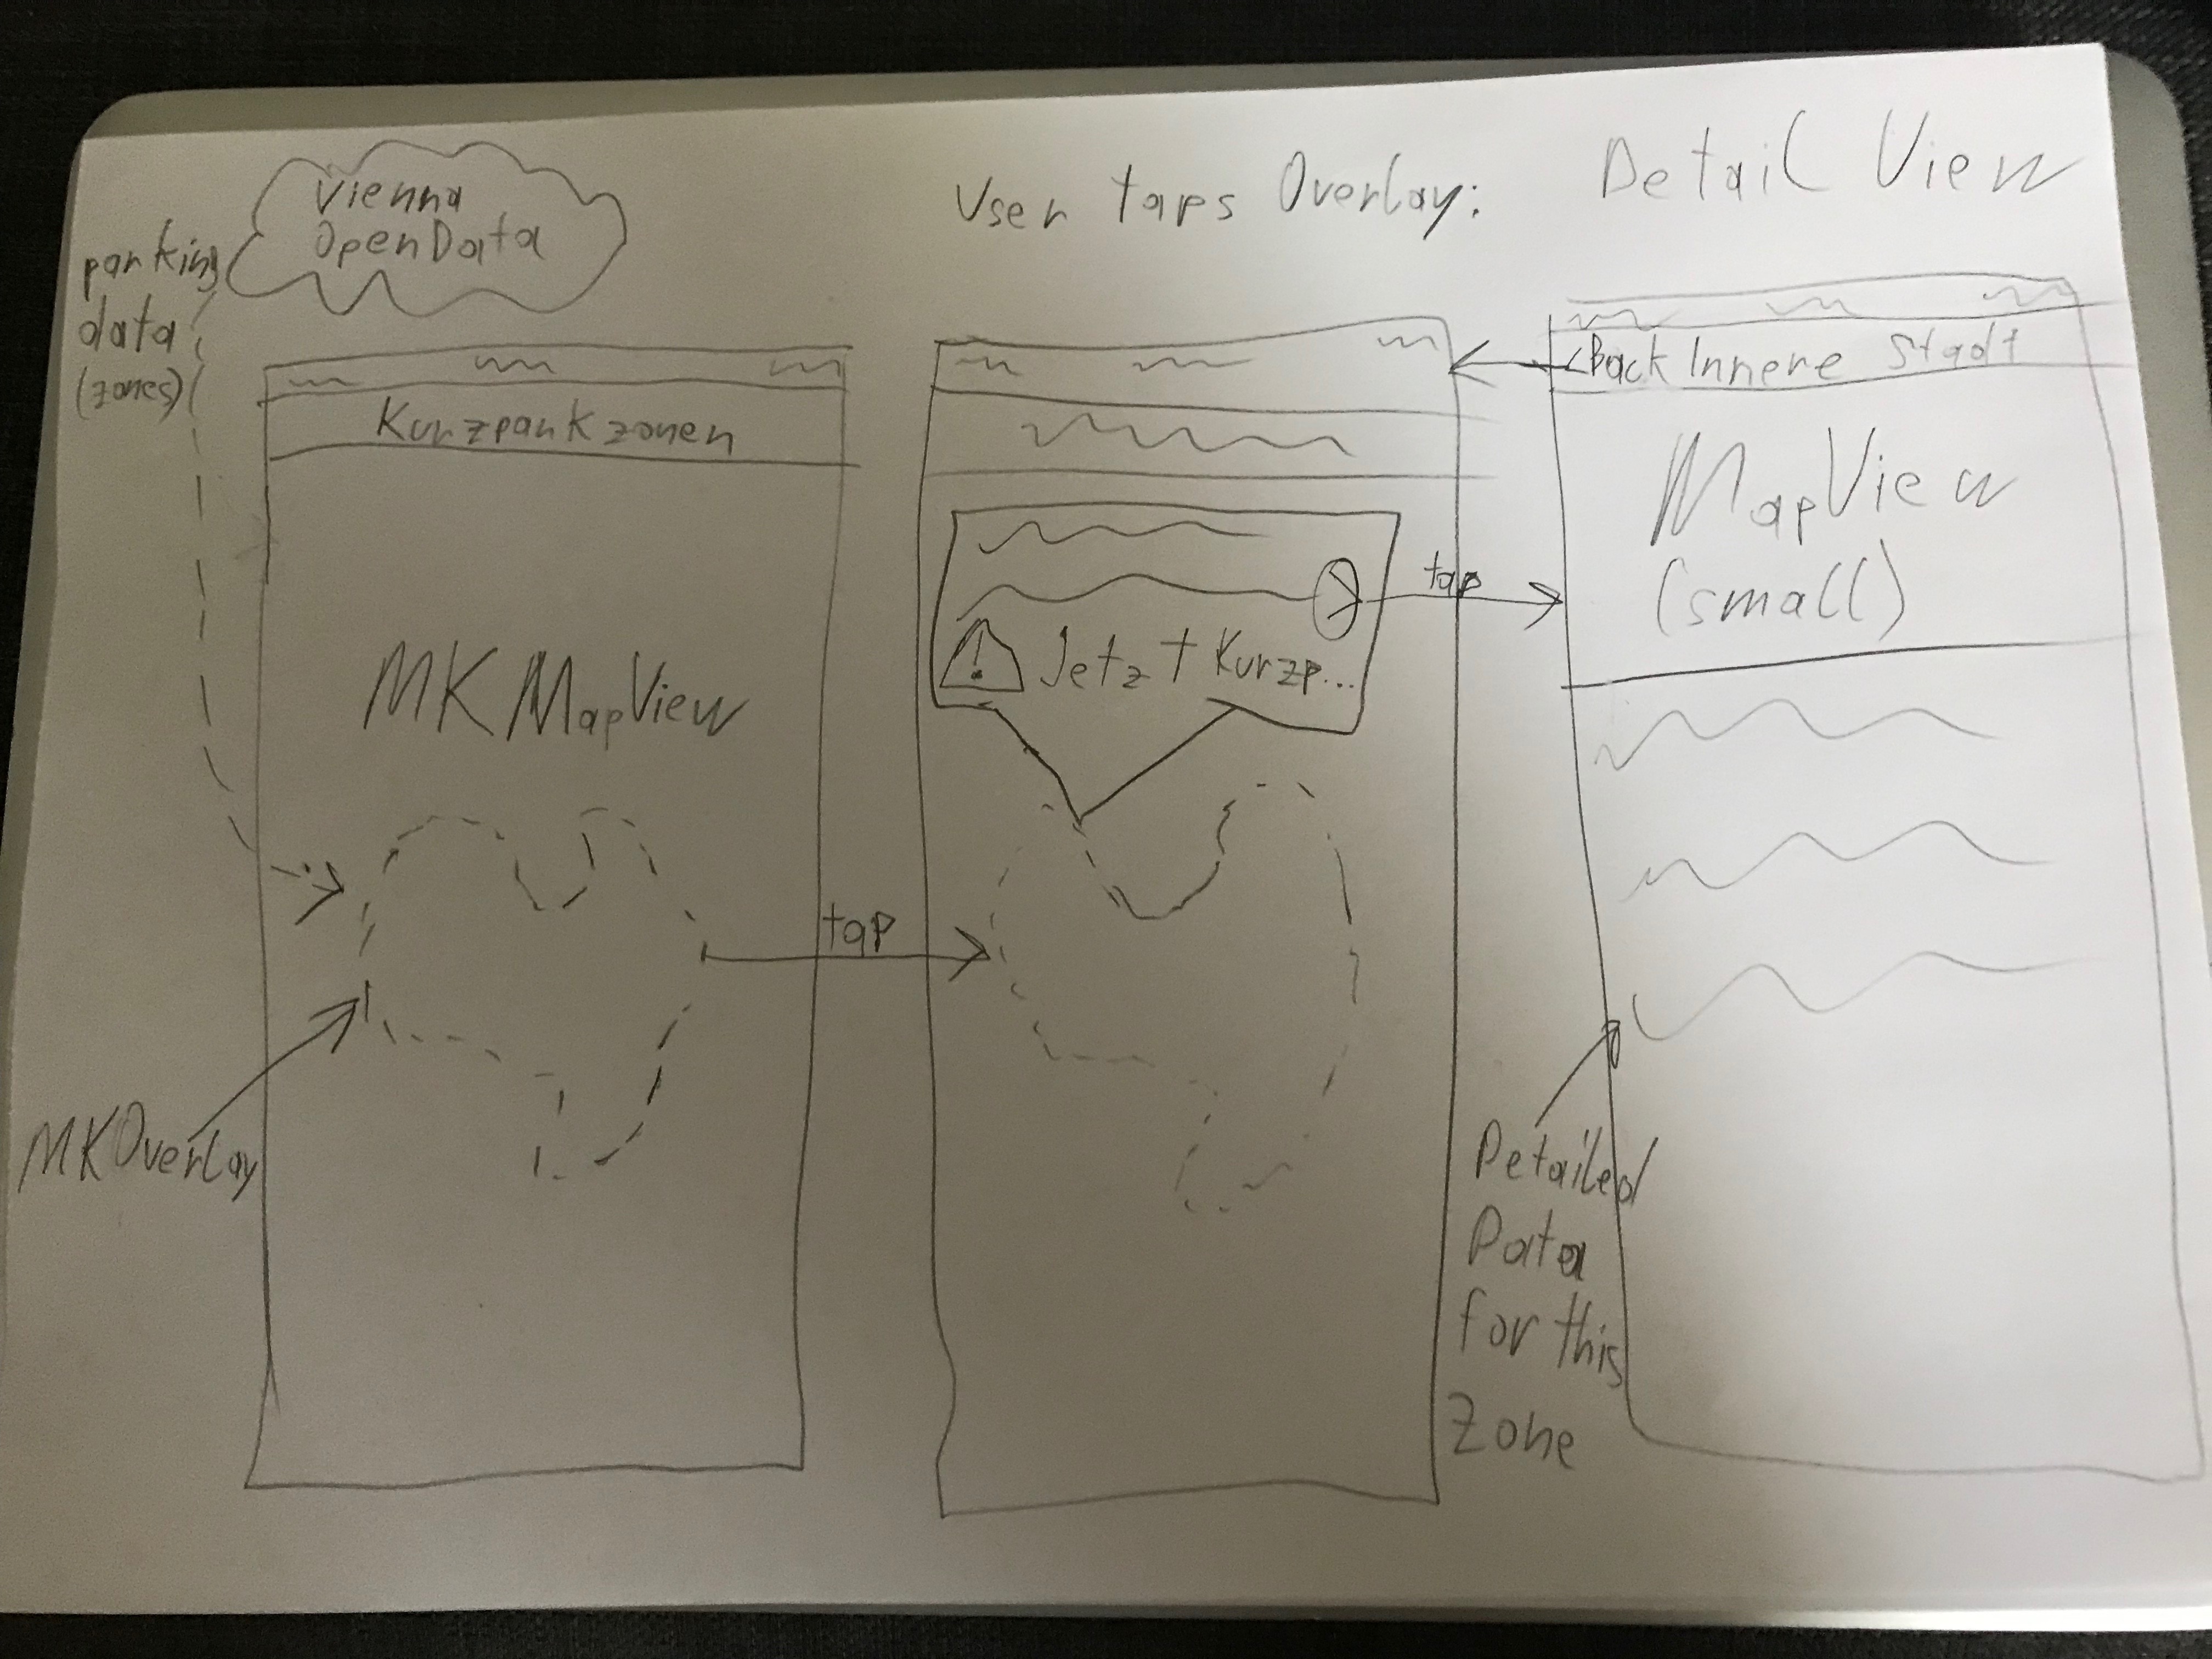 Vienna
OpenData
parking
data
(zones)
Kurzparkzonen
MKMapView
tap
MKOverlay
User taps Overlay:
Jetzt Kurzp...
tap
Detail View
<Back Innere Stadt
MapView
(small)
Detailed
Data
for this
Zone